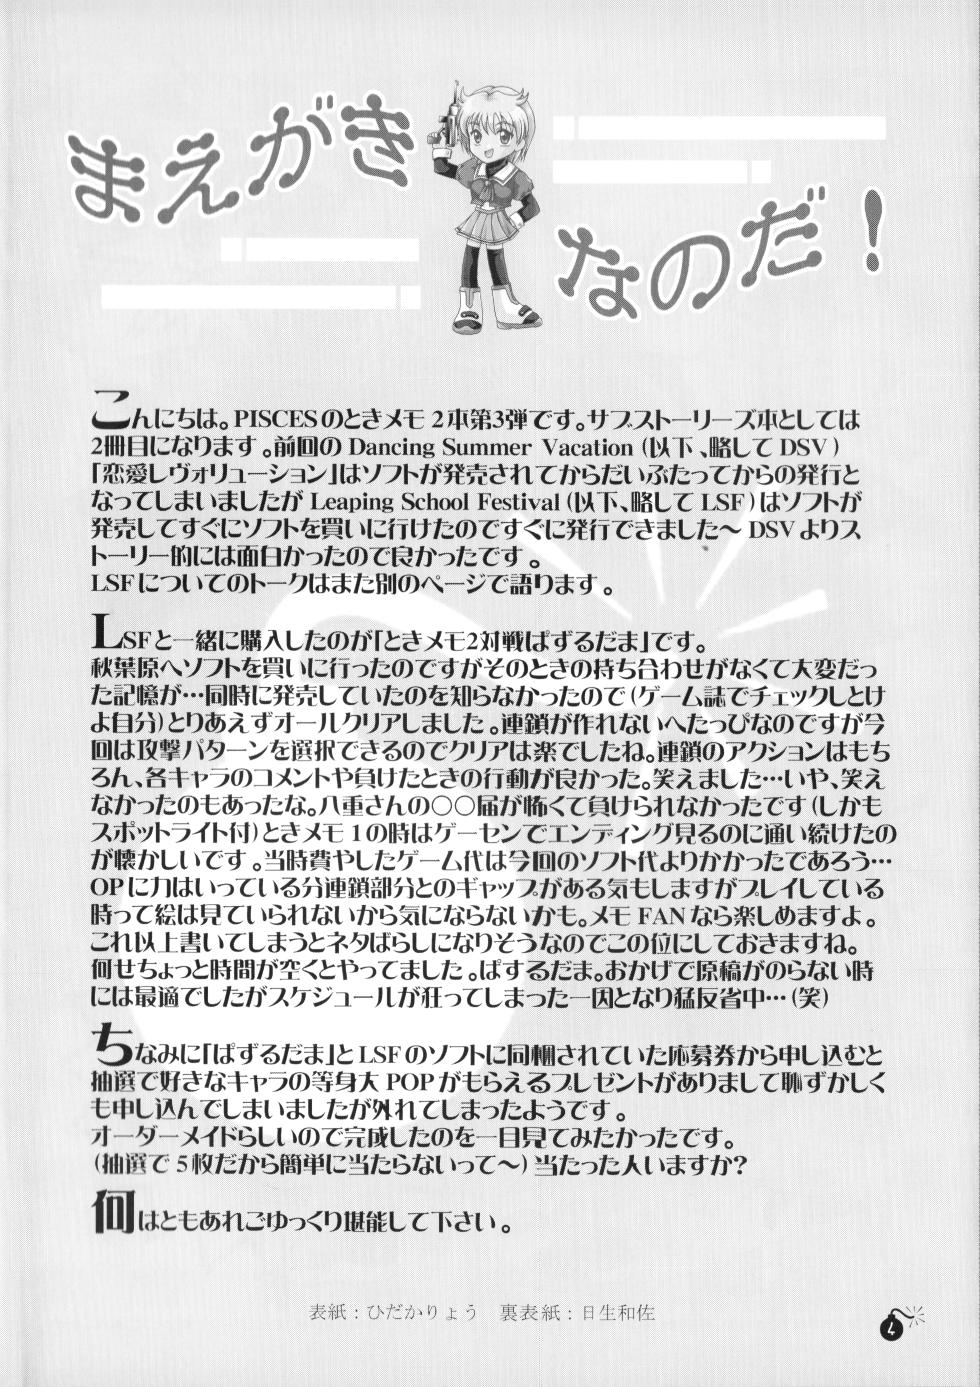 まえがき
なのだ!
こんにちは。PISCESのときメモ2本第3弾です。サブストーリーズ本としては
2冊目になります。前回の Dancing Summer Vacation (以下、略して DSV)
「恋愛レヴォリューション」はソフトが発売されてからだいぶたってからの発行と
なってしまいましたが Leaping School Festival (以下、略して LSF) はソフトが
発売してすぐにソフトを買いに行けたのですぐに発行できました～ DSV よりス
トーリー的には面白かったので良かったです。
LSF についてのトークはまた別のページで語ります。
LSFと一緒に購入したのが「ときメモ2対戦ぱずるだま」です。
秋葉原へソフトを買いに行ったのですがそのときの持ち合わせがなくて大変だっ
た記憶が…同時に発売していたのを知らなかったので (ゲーム誌でチェックしとけ
よ自分) とりあえずオールクリアしました。連鎖が作れないへたっぴなのですが今
回は攻撃パターンを選択できるのでクリアは楽でしたね。連鎖のアクションはもち
ろん、各キャラのコメントや負けたときの行動が良かった。笑えました…いや、笑え
なかったのもあったな。八重さんの○○届が怖くて負けられなかったです (しかも
スポットライト付) ときメモ1の時はゲーセンでエンディング見るのに通い続けたの
が懐かしいです。当時費やしたゲーム代は今回のソフト代よりかかったであろう…
OPに力はいっている分連鎖部分とのギャップがある気もしますがプレイしている
時って絵は見ていられないから気にならないかも。メモ FAN なら楽しめますよ。
これ以上書いてしまうとネタばらしになりそうなのでこの位にしておきますね。
何せちょっと時間が空くとやってました。ぱずるだま。おかげで原稿がのらない時
には最適でしたがスケジュールが狂ってしまった一因となり猛反省中…(笑)
ちなみに「ぱずるだま」と LSF のソフトに同梱されていた応募券から申し込むと
抽選で好きなキャラの等身大 POP がもらえるプレゼントがありまして恥ずかしく
も申し込んでしまいましたが外れてしまったようです。
オーダーメイドらしいので完成したのを一目見てみたかったです。
(抽選で5枚だから簡単に当たらないって～) 当たった人いますか?
何はともあれごゆっくり堪能して下さい。
表紙：ひだかりょう　裏表紙：日生和佐
4